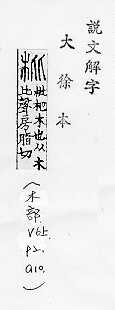 說文解字
大徐本
枇
枇杷木也从木
比聲房脂切
(木部. V65. P2. a10.)